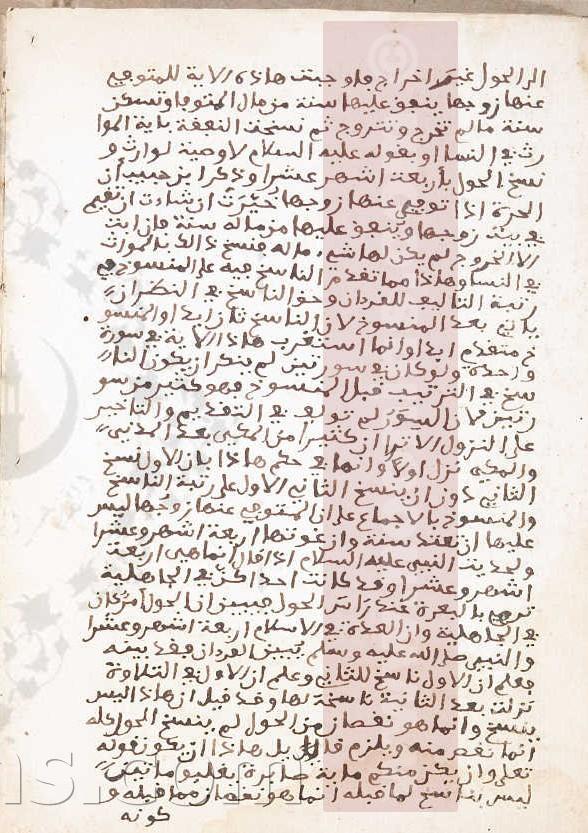 الى الحول غير اخراج فاوجبت هاذه الاية للمتوفى
عنها زوجها ينفق عليها سنة من مال المتوفا وتسكن
سنة ما لم تخرج وتتزوج ثم نسخت النفقة باية الموا
رث في النسا او بقوله عليه السلام لا وصية لوارث و
نسخ الحول باربعة اشهر وعشرا وذكر ابن حبيب ان
الحرة اذا توفى عنها زوجها خيرت ان شاءت ان تقيم
في بيت زوجها وينفق عليها من ماله سنة فان ابت
الا الخروج لم يكن لها شيء من ماله فنسخ ذالك بالموارث
في النسا وهاذا مما تقدم الناسخ فيه على المنسوخ في
رتبة التاليف للقرءان وحق الناسخ في النظر ان
ياتي بعد المنسوخ لان الناسخ ثان ابدا والمنسو
خ متقدم ابدا وانما استغرب هاذا لانه في سورة
واحدة ولو كان في سورتين لم ينكر ان يكون النا
سخ في الترتيب قبل المنسوخ فهو كثير من سو
رتين لان السور لم تولف في التقديم والتاخير
على النزول الا ترا ان كثيرا من المكي بعد المدني
والمكي نزل اولا وانما في حكم هاذا بان الاول نسخ
الثاني دون ان ينسخ الثاني الاول على رتبة الناسخ
والمنسوخ بالاجماع على ان المتوفى عنها زوجها ليس
عليها ان تعتد سنة وان عدتها اربعة اشهر وعشرا
ولحديث النبي عليه السلام اذ قال انما هي اربعة
اشهر وعشرا وقد كانت احداكن في الجاهلية
ترمي بالبعرة عند راس الحول فبين ان الحول امر كان
في الجاهلية وان العدة في الاسلام اربعة اشهر وعشرا
والنبي صلى الله عليه وسلم يبين القرءان فقد بينه
فعلم ان الاول ناسخ للثاني وعلم ان الاول في التلاوة
نزلت بعد الثانية ناسخة لها وقد قيل ان هاذا ليس
بنسخ وانما هو نقصان من الحول لم ينسخ الحول كله
انما نقص منه ويلزم قائل هاذا ان يكون قوله
تعلى وان يكن منكم ماية صابرة يغلبوا مايتين
ليس بناسخ لما قبله انما هو نقصان مما قبله و
كونه